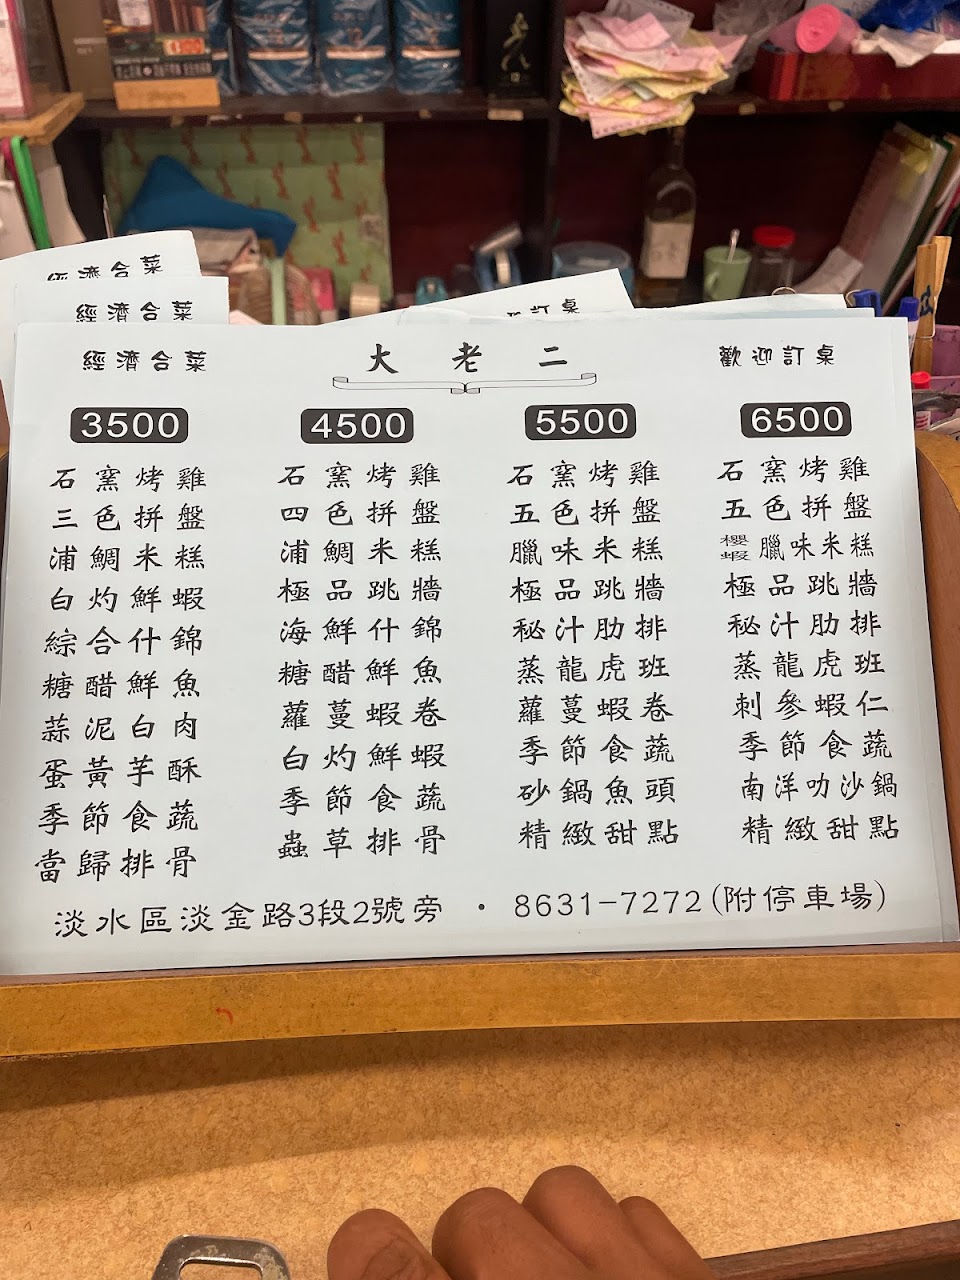 經濟合菜
經濟合菜
訂桌
經濟合菜 大老二 歡迎訂桌
3500
石窯烤雞
三色拼盤
浦鯛米糕
白灼鮮蝦
綜合什錦
糖醋鮮魚
蒜泥白肉
蛋黃芋酥
季節食蔬
當歸排骨
4500
石窯烤雞
四色拼盤
浦鯛米糕
極品跳牆
海鮮什錦
糖醋鮮魚
蘿蔓蝦卷
白灼鮮蝦
季節食蔬
蟲草排骨
5500
石窯烤雞
五色拼盤
臘味米糕
極品跳牆
秘汁肋排
蒸龍虎班
蘿蔓蝦卷
季節食蔬
砂鍋魚頭
精緻甜點
6500
石窯烤雞
五色拼盤
櫻蝦臘味米糕
極品跳牆
秘汁肋排
蒸龍虎班
刺參蝦仁
季節食蔬
南洋叻沙鍋
精緻甜點
淡水區淡金路3段2號旁 · 8631-7272(附停車場)